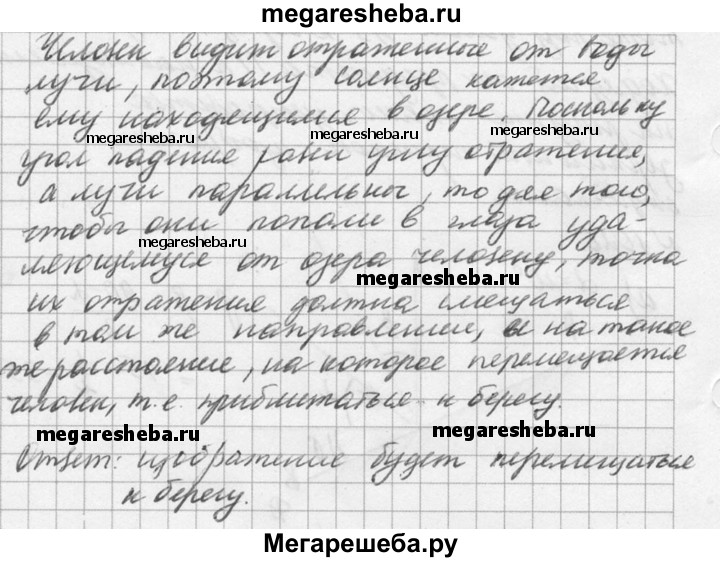 megaresheba.ru
Человек видит отраженные от воды
лучи, поэтому солнце кажется
ему находящимся в озере. Поскольку
megaresheba.ru megaresheba.ru megaresheba.ru
угол падения равен углу отражения,
а лучи параллельны, то для того,
чтобы они попали в глаза уда-
megaresheba.ru
ляющемуся от озера человеку, точка
megaresheba.ru
их отражения должна смещаться
в том же направлении, и на такое
же расстояние, на которое перемещается
человек, т.е. приближаться к берегу.
megaresheba.ru megaresheba.ru
Ответ: изображение будет перемещаться
к берегу.
Мегарешеба.ру